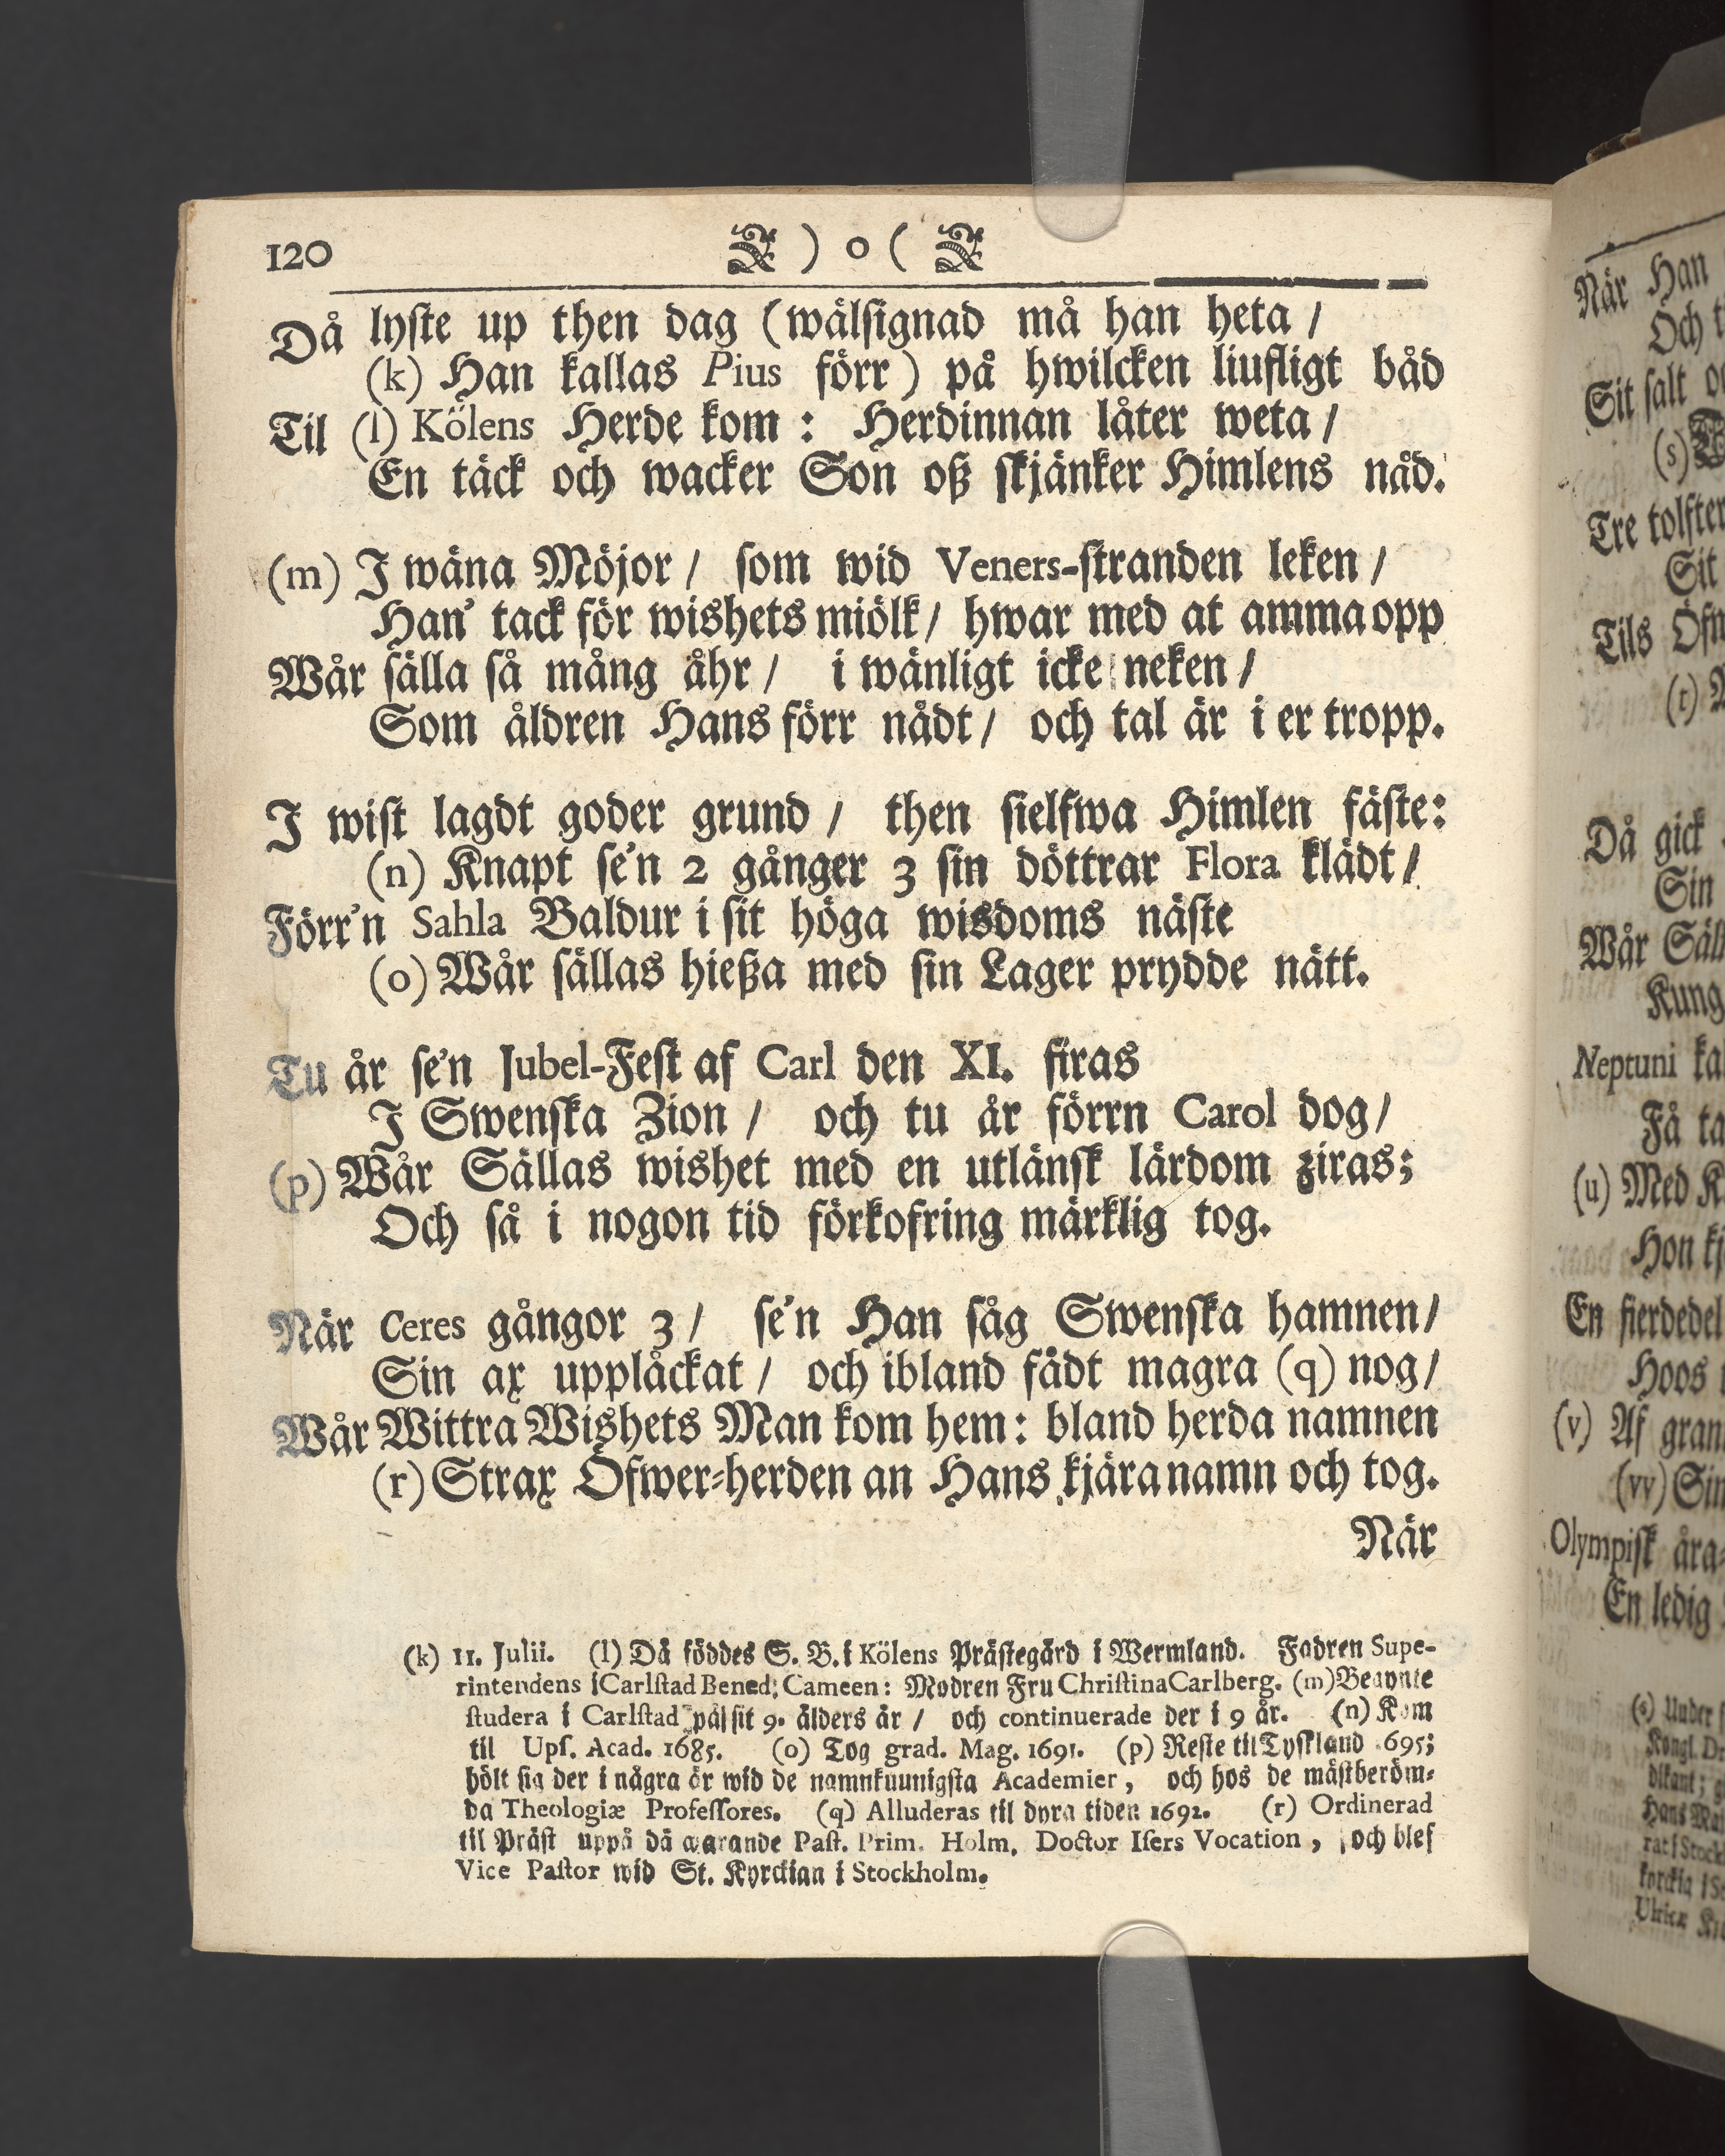 120 ) o (
Då lyste up then dag (wälsignad må han heta /
(k) Han kallas Pius förr) på hwilcken liufligt båd
Til (l) Kölens Herde kom : Herdinnan låter weta /
En täck och wacker Son oß skjänker Himlens nåd.
(m) I wäna Möjor / som wid Veners-stranden leken /
Han' tack för wishets miölk / hwar med at amma opp
Wår sälla så mång åhr / i wänligt icke neken /
Som åldren Hans förr nådt / och tal är i er tropp.
I wist lagdt goder grund / then sielfwa Himlen fäste:
(n) Knapt se'n 2 gånger 3 sin döttrar Flora klädt /
Förr'n Sahla Baldur i sit höga wisdoms näste
(o) Wår sällas hießa med sin Lager prydde nätt.
Tu år se'n Jubel-Fest af Carl den XI. firas
I Swenska Zion / och tu år förrn Carol dog /
(p) Wår Sällas wishet med en utlänsk lärdom ziras;
Och så i nogon tid förkofring märklig tog.
När Ceres gångor 3 / se'n Han såg Swenska hamnen /
Sin ax upplåckat / och ibland fådt magra (q) nog /
Wår Wittra Wishets Man kom hem: bland herda namnen
(r) Strax Öfwer-herden an Hans kjära namn och tog.
När
(k) 11. Julii. (l) Då föddes S. B. i Kölens Prästegård i Wermland. Fadren Supe-
rintendens i Carlstad Bened. Cameen: Modren Fru Christina Carlberg. (m) Begynte
studera i Carlstad på sit 9. ålders år / och continuerade der i 9 år. (n) Kom
til Ups. Acad. 1685. (o) Tog grad. Mag. 1691. (p) Reste til Tyskland 695;
hölt sig der i några år wid de namnkuunigsta Academier, och hos de mästberöm-
da Theologiæ Professores. (q) Alluderas til dyra tiden 1692. (r) Ordinerad
til Präst uppå då warande Past. Prim. Holm. Doctor Isers Vocation, och blef
Vice Pastor wid St. Kyrckian i Stockholm.